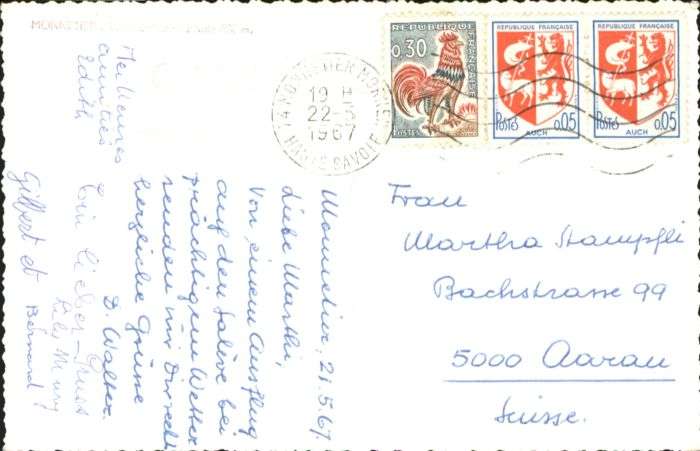 RÉPUBLIQUE FRANÇAISE
0,30
POSTES
RÉPUBLIQUE FRANÇAISE
POSTES 0,05
AUCH
RÉPUBLIQUE FRANÇAISE
POSTES 0,05
AUCH
74 MONNETIER MORNEX
19 H
22-5
1967
HAUTE SAVOIE
Monnetier, 21.5.67.
Liebe Marthi,
Von einem Ausflug
auf den Salève bei
prächtigem Wetter
senden wir Dir recht
herzliche Grüsse
D. Walter.
Ein lieber Gruss
Gilbert et Bernard
Meilleures
amitiés
Edith
Frau
Martha Stampfli
Bachstrasse 99
5000 Aarau
Suisse.